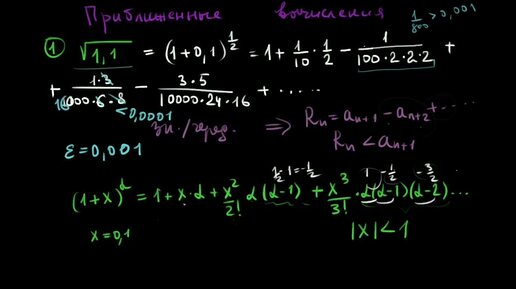 Приближенные вычисления
1/800 > 0,001
① √1,1 = (1+0,1)^(1/2) = 1 + 1/10 · 1/2 − 1/(100·2·2·2) +
+ (1·3)/(1000·6·8) − (3·5)/(10000·24·16) + .....
16 < 0,0001
зн./черед. ⇒ Rn = an+1 − an+2 + ....
Rn < an+1
ε = 0,001
1/2 − 1 = −1/2 1 −1/2 −3/2
(1+x)^α = 1 + x·α + x²/2! α(α−1) + x³/3! · α(α−1)(α−2)...
x = 0,1 |x| < 1